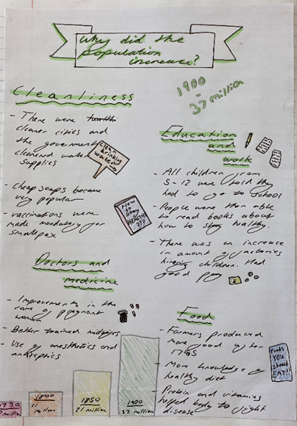 Why did the
population
increase?
1900
- 37 million
Cleanliness
- There were
cleaner cities and
the government
cleaned water
supplies
Clean
drinking
water
- Cheap soaps became
very popular
- vaccinations were
made mandatory for
smallpox
Education
and
work
- All children from
5-12 were told they
had to go to school
- People were then able
to read books about
how to stay healthy.
- There was an increase
in amount of factories
hiring children. Had
good pay
How to
stay
Healthy
???
Doctors and
medicine
- Improvements in the
care of pregnant
women
- Better trained midwives
- Use of anesthetics and
antiseptics
Food
- Farmers produced
more food up to
1795
- More knowledge
healthy diet
- Protein and vitamins
helped body to fight
disease
Foods
you
should
EAT!!
1750
1800
11
million
1850
21 million
1900
37 million